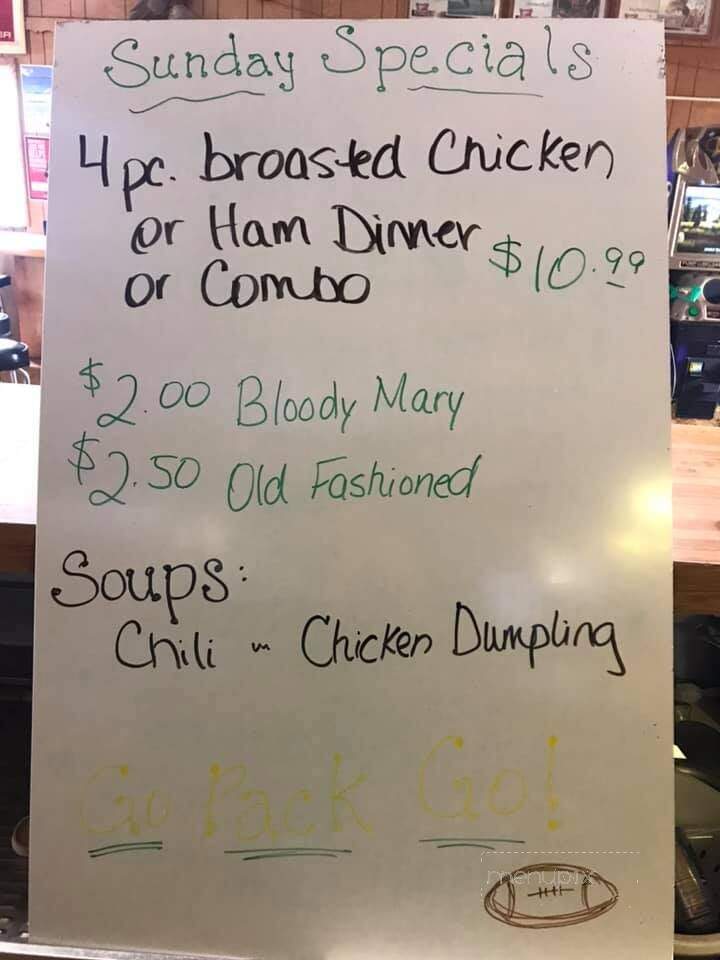 Sunday Specials
4 pc. broasted Chicken
or Ham Dinner
or Combo $10.99
$2.00 Bloody Mary
$2.50 Old Fashioned
Soups:
Chili ~ Chicken Dumpling
Go Pack Go!
menupix